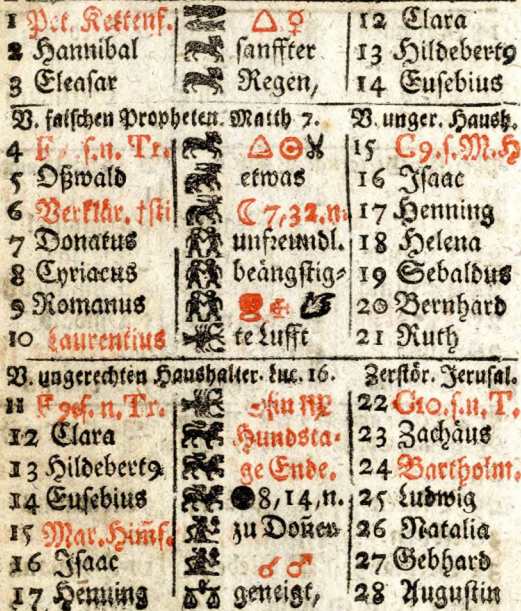 1 Pet. Kettenf. △ ♀ 12 Clara
2 Hannibal sanffter 13 Hildebertꝰ
3 Eleasar Regen, 14 Eusebius
V. falschen Propheten. Matth 7. V. unger. Haush.
4 F s.n. Tr. △ ☉ 15 C9.s.M.H
5 Oßwald etwas 16 Jsaac
6 Verklär. ☾ 7,32.n. 17 Henning
7 Donatus unfreundl. 18 Helena
8 Cyriacus beängstig⸗ 19 Sebaldus
9 Romanus 20 Bernhard
10 Laurentius te Lufft 21 Ruth
V. ungerechten Haushalter. Luc. 16. Zerstör. Jerusal.
11 n. Tr. in ♍ 22 C10.s.n.T.
12 Clara Hundsta⸗ 23 Zachäus
13 Hildebertꝰ ge Ende. 24 Bartholm.
14 Eusebius ● 8,14,n. 25 Ludwig
15 Mar. Him̃f. zu Donen 26 Natalia
16 Jsaac ☌ ♂ 27 Gebhard
17 Henning geneigt, 28 Augustin